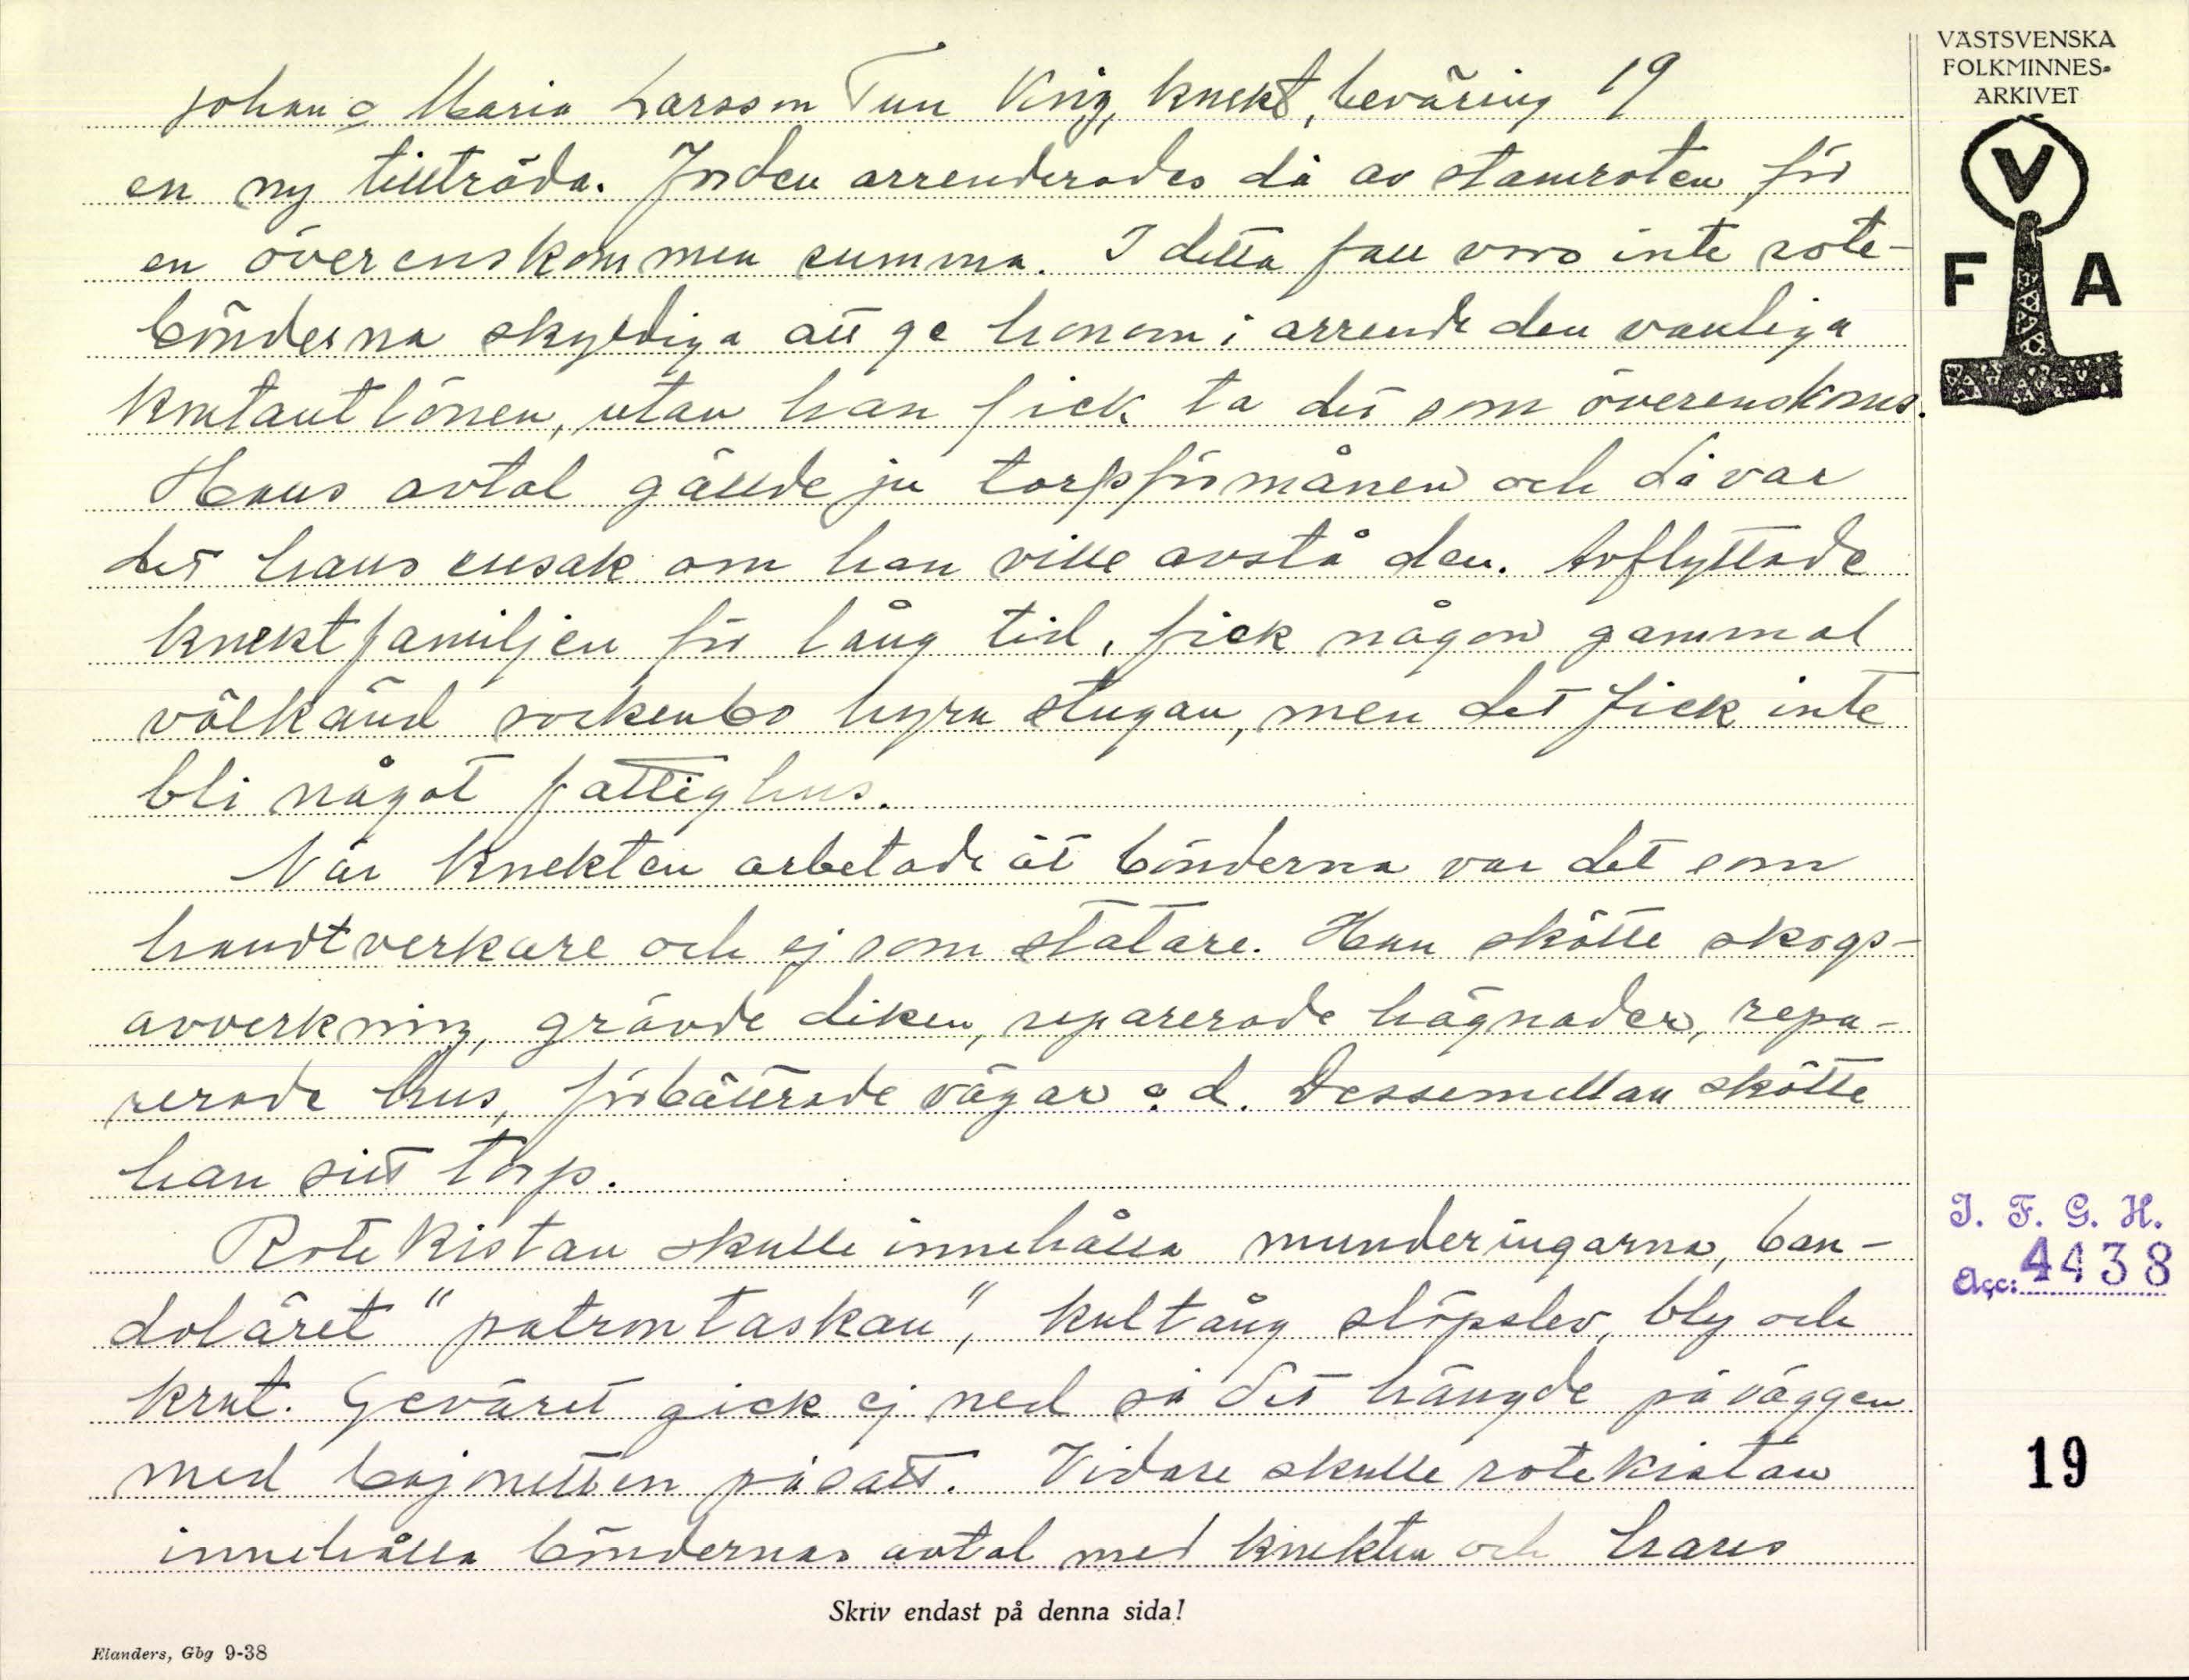 Johan o Maria Larsson Tun Krig, knekt, beväring 19
en ny tillträda. Jorden arrenderades då av stamroten för
en överenskommen summa. I detta fall voro inte rote-
bönderna skyldiga att ge honom i arrende den vanliga
kontantlönen, utan han fick ta det som överenskoms.
Hans avtal gällde ju torpförmånen och då var
det hans ensak om han ville avstå den. Avflyttade
knektfamiljen för lång tid, fick någon gammal
välkänd sockenbo hyra stugan, men det fick inte
bli något fattighus.
När knekten arbetade åt bönderna var det som
handtverkare och ej som statare. Han skötte skogs-
avverkning, grävde diken, reparerade hägnader, repa-
rerade hus, förbättrade vägar o. d. Dessemellan skötte
han sitt torp.
Rotekistan skulle innehålla munderingarna, ban-
doläret "patrontaskan", kultång stöpslev, bly och
krut. Geväret gick ej ned så det hängde på väggen
med bajonetten påsatt. Vidare skulle rotekistan
innehålla böndernas avtal med knekten och hans
Skriv endast på denna sida!
Elanders, Gbg 9-38
VÄSTSVENSKA
FOLKMINNES-
ARKIVET
V
F A
I. F. G. H.
Acc: 4438
19